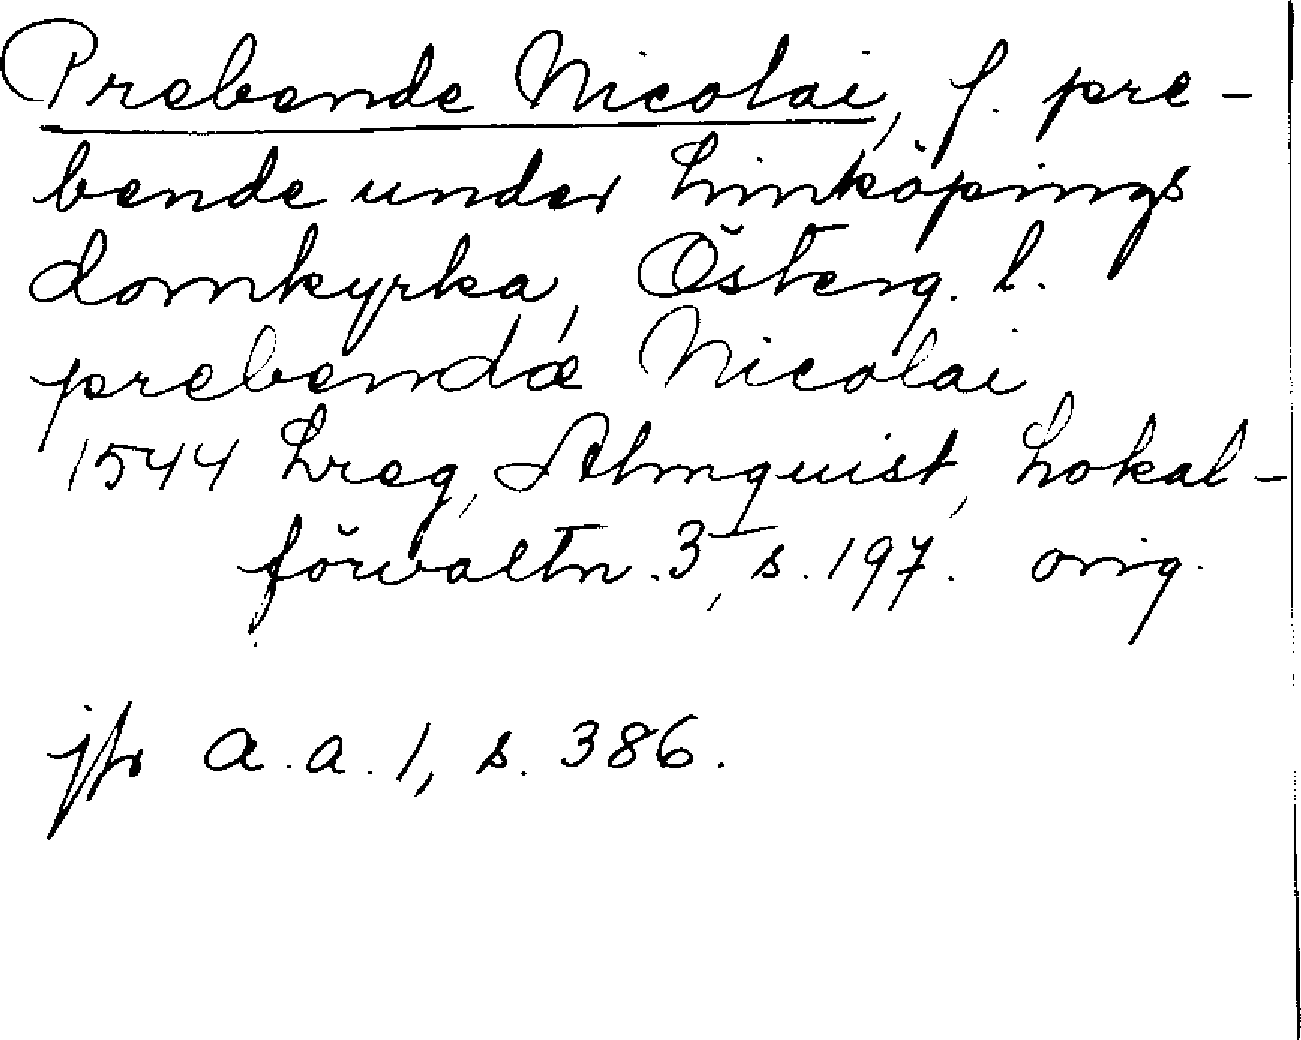 Prebende Nicolai, f. pre-
bende under Linköpings
domkyrka, Österg. l.
prebendæ Nicolai
1544 Lreg, Almquist, Lokal-
förvaltn. 3, s. 197. orig.
jfr a. a. 1, s. 386.